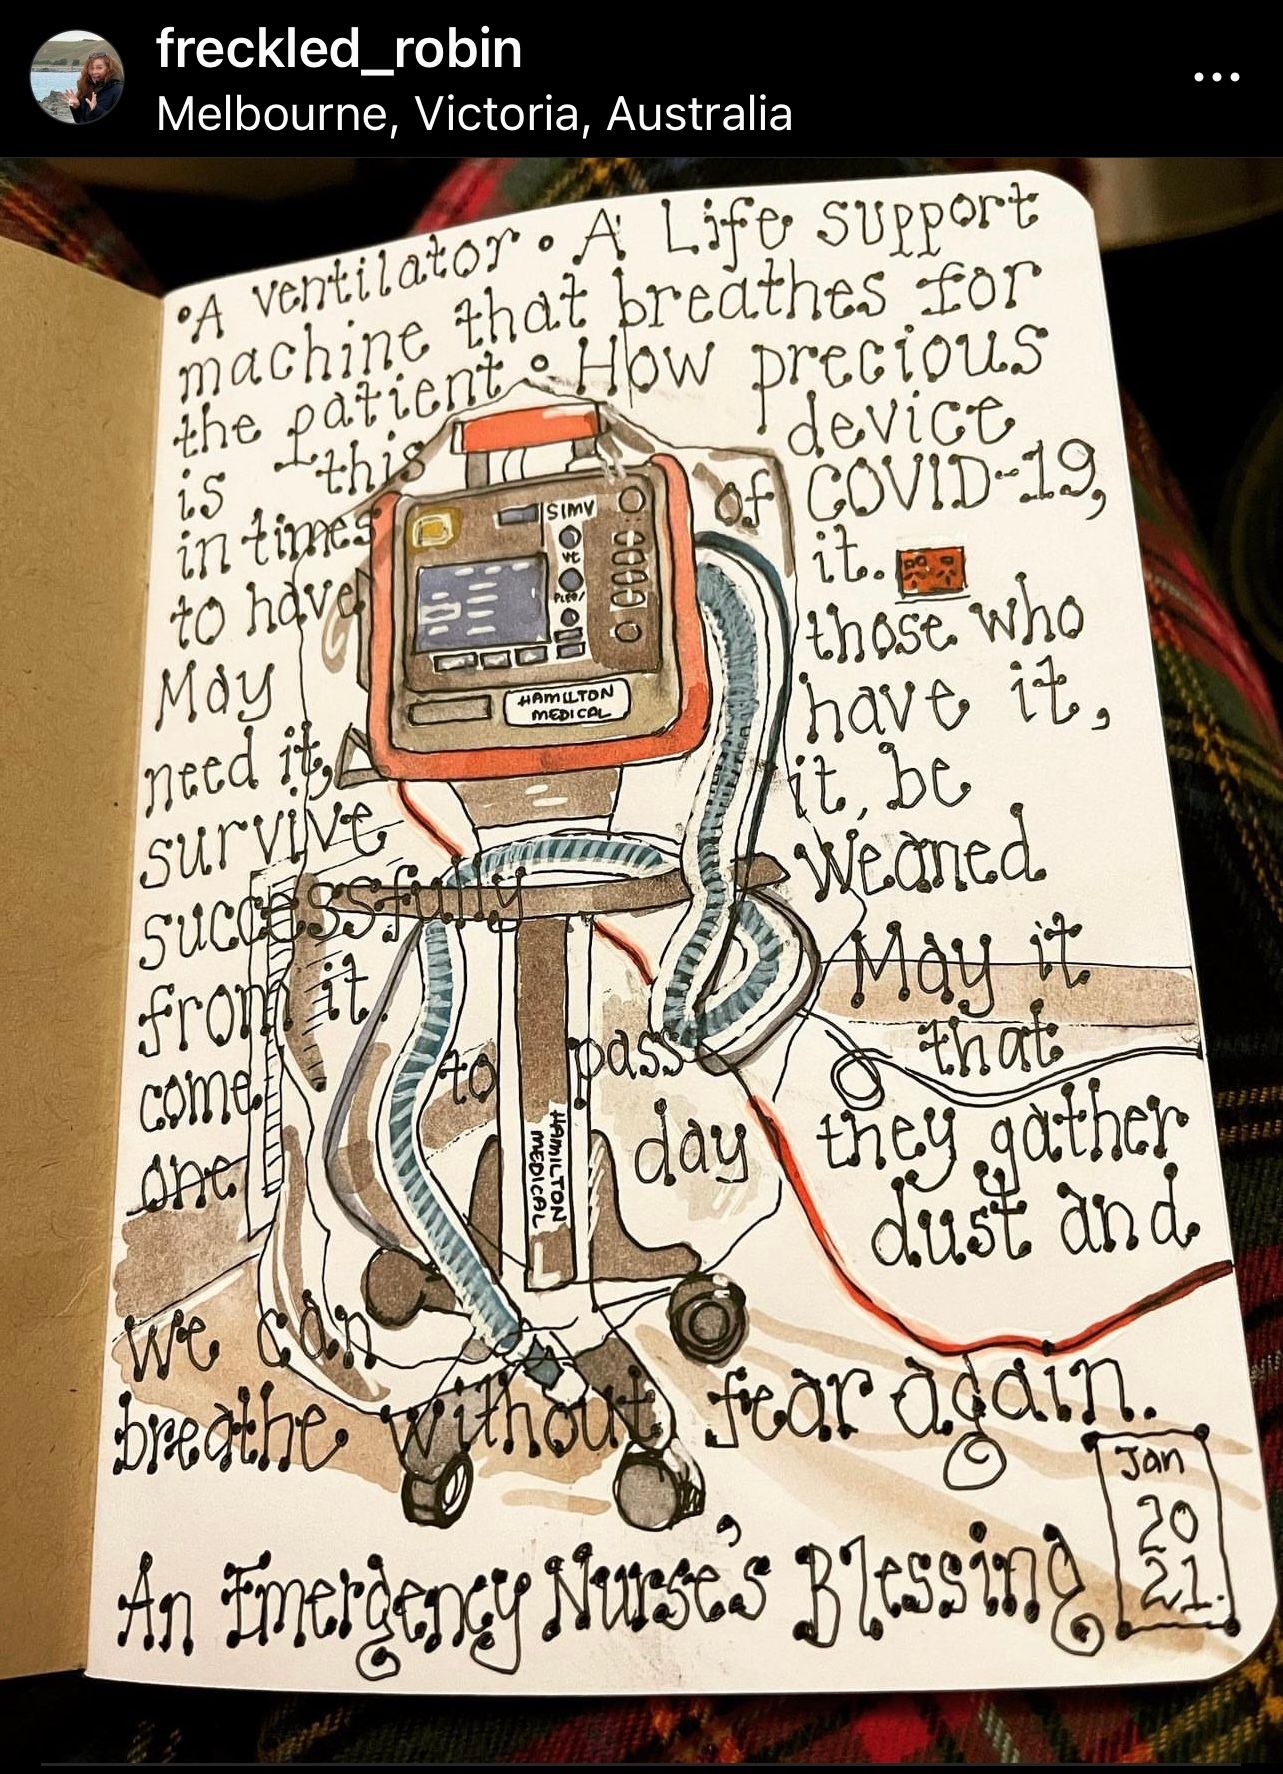 freckled_robin
Melbourne, Victoria, Australia
•A ventilator • A Life support
machine that breathes for
the patient • How precious
is this device
in times of COVID-19,
to have it.
May those who
need it, have it,
survive it, be
successfully weaned
from it. May it
come to pass that
one day they gather
dust and
we can
breathe without fear again.
An Emergency Nurse's Blessing
Jan
20
21.
SIMV
Vt
HAMILTON
MEDICAL
HAMILTON
MEDICAL